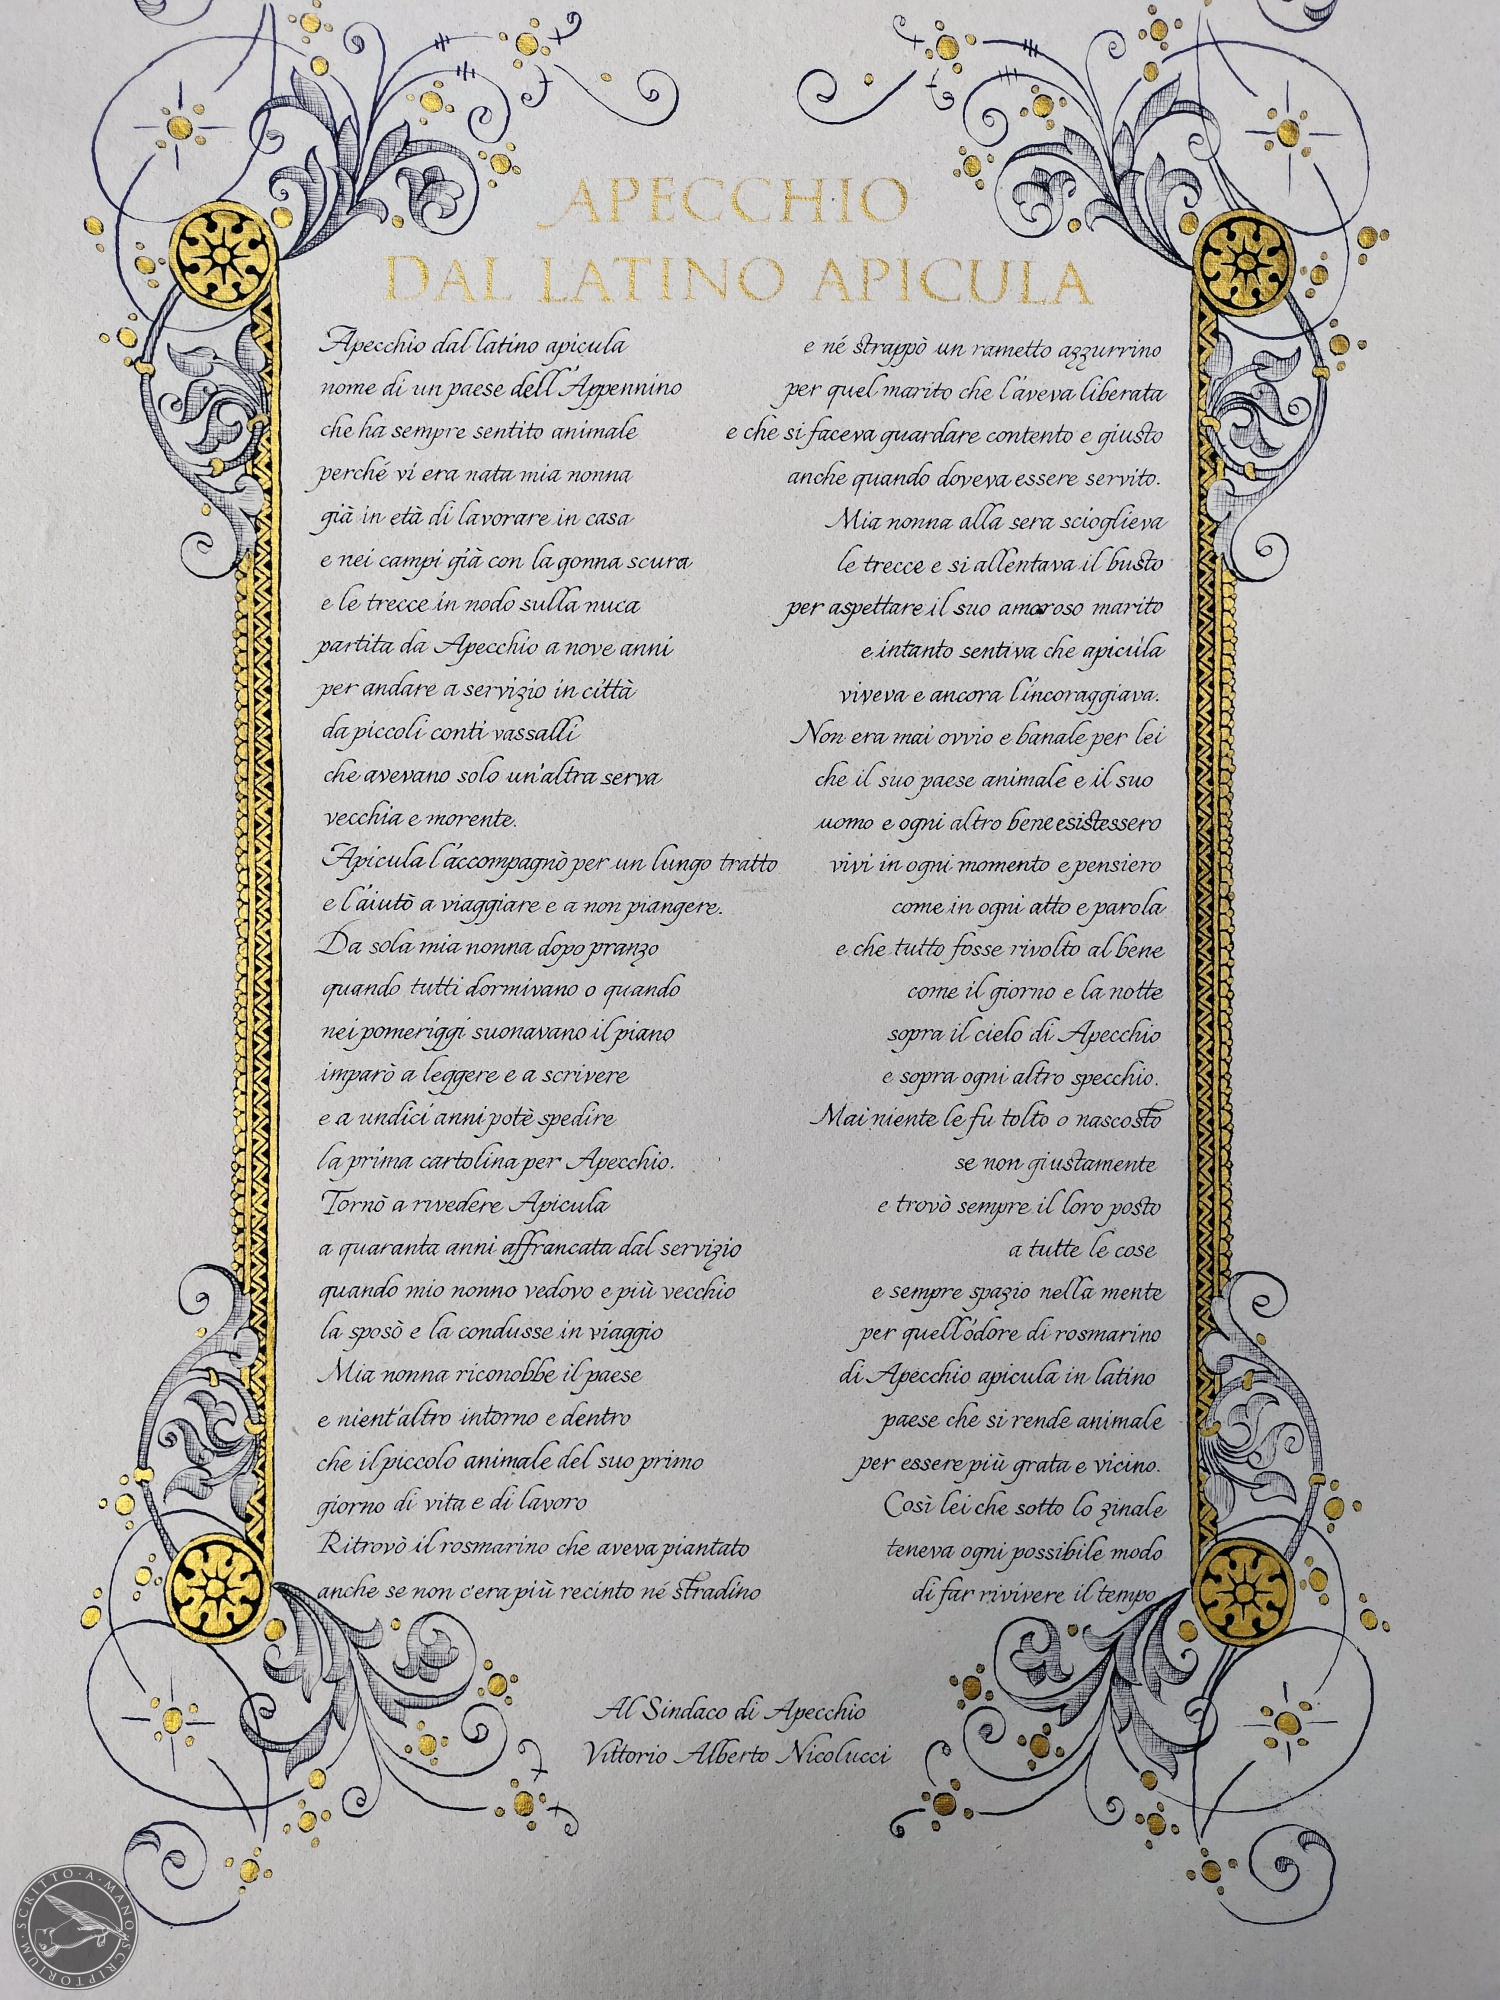 APECCHIO
DAL LATINO APICULA
Apecchio dal latino apicula
nome di un paese dell'Appennino
che ha sempre sentito animale
perché vi era nata mia nonna
già in età di lavorare in casa
e nei campi già con la gonna scura
e le trecce in nodo sulla nuca
partita da Apecchio a nove anni
per andare a servizio in città
da piccoli conti vassalli
che avevano solo un'altra serva
vecchia e morente.
Apicula l'accompagnò per un lungo tratto
e l'aiutò a viaggiare e a non piangere.
Da sola mia nonna dopo pranzo
quando tutti dormivano o quando
nei pomeriggi suonavano il piano
imparò a leggere e a scrivere
e a undici anni potè spedire
la prima cartolina per Apecchio.
Tornò a rivedere Apicula
a quaranta anni affrancata dal servizio
quando mio nonno vedovo e più vecchio
la sposò e la condusse in viaggio
Mia nonna riconobbe il paese
e nient'altro intorno e dentro
che il piccolo animale del suo primo
giorno di vita e di lavoro
Ritrovò il rosmarino che aveva piantato
anche se non c'era più recinto né stradino
e né strappò un rametto azzurrino
per quel marito che l'aveva liberata
e che si faceva guardare contento e giusto
anche quando doveva essere servito.
Mia nonna alla sera scioglieva
le trecce e si allentava il busto
per aspettare il suo amoroso marito
e intanto sentiva che apicula
viveva e ancora l'incoraggiava.
Non era mai ovvio e banale per lei
che il suo paese animale e il suo
uomo e ogni altro bene esistessero
vivi in ogni momento e pensiero
come in ogni atto e parola
e che tutto fosse rivolto al bene
come il giorno e la notte
sopra il cielo di Apecchio
e sopra ogni altro specchio.
Mai niente le fu tolto o nascosto
se non giustamente
e trovò sempre il loro posto
a tutte le cose
e sempre spazio nella mente
per quell'odore di rosmarino
di Apecchio apicula in latino
paese che si rende animale
per essere più grata e vicino.
Così lei che sotto lo zinale
teneva ogni possibile modo
di far rivivere il tempo
Al Sindaco di Apecchio
Vittorio Alberto Nicolucci
SCRITTO · A · MANO · SCRIPTORIUM ·